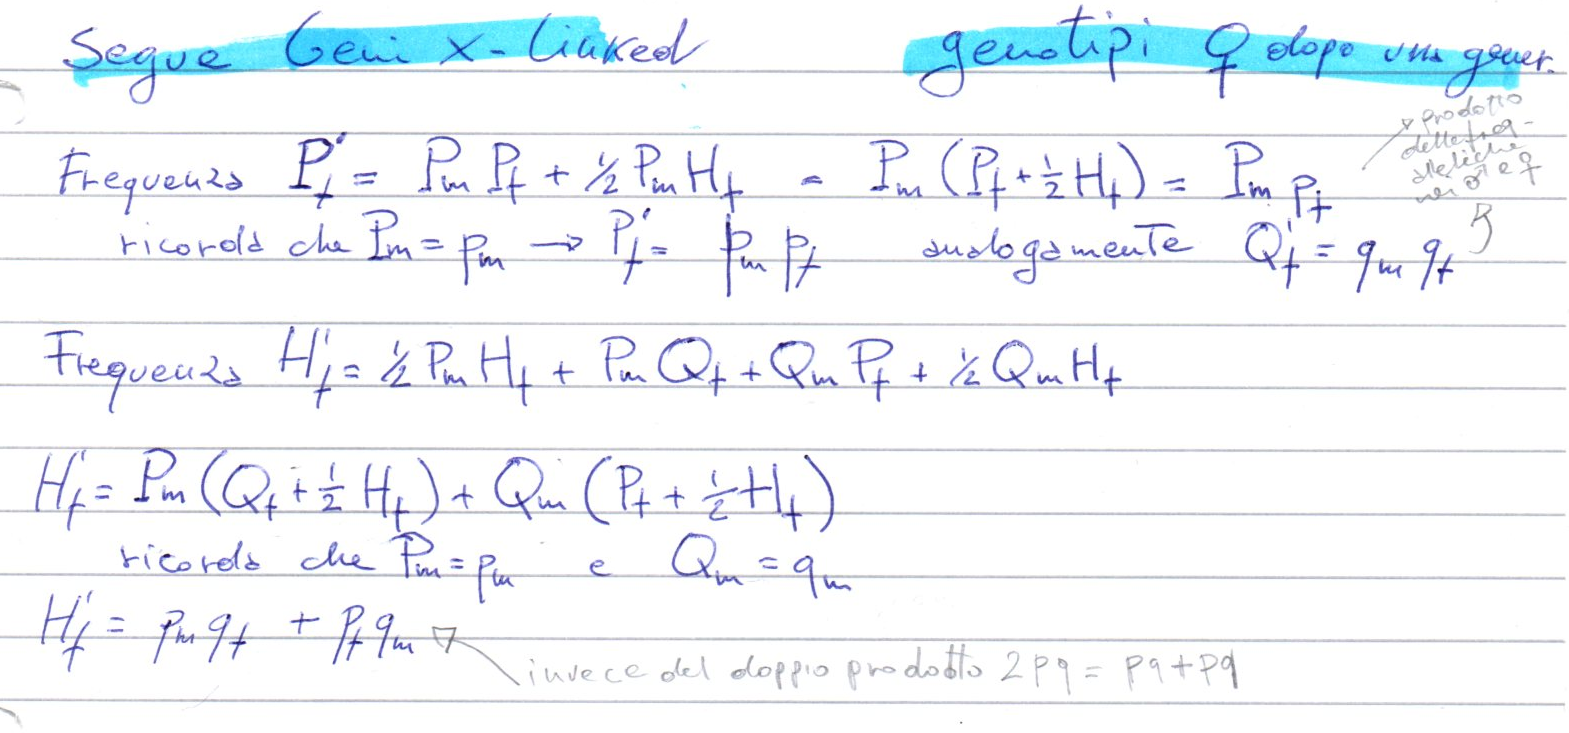 Segue Geni X-linked genotipi ♀ dopo una gener.
Frequenza P'f = Pm Pf + ½ Pm Hf = Pm (Pf + ½ Hf) = Pm pf
prodotto
delle freq-
alleliche
nei ♂ e ♀
ricorda che Pm = pm → P'f = pm pf analogamente Q'f = qm qf
Frequenza H'f = ½ Pm Hf + Pm Qf + Qm Pf + ½ Qm Hf
H'f = Pm (Qf + ½ Hf) + Qm (Pf + ½ Hf)
ricorda che Pm = pm e Qm = qm
H'f = pm qf + pf qm
invece del doppio prodotto 2pq = pq + pq